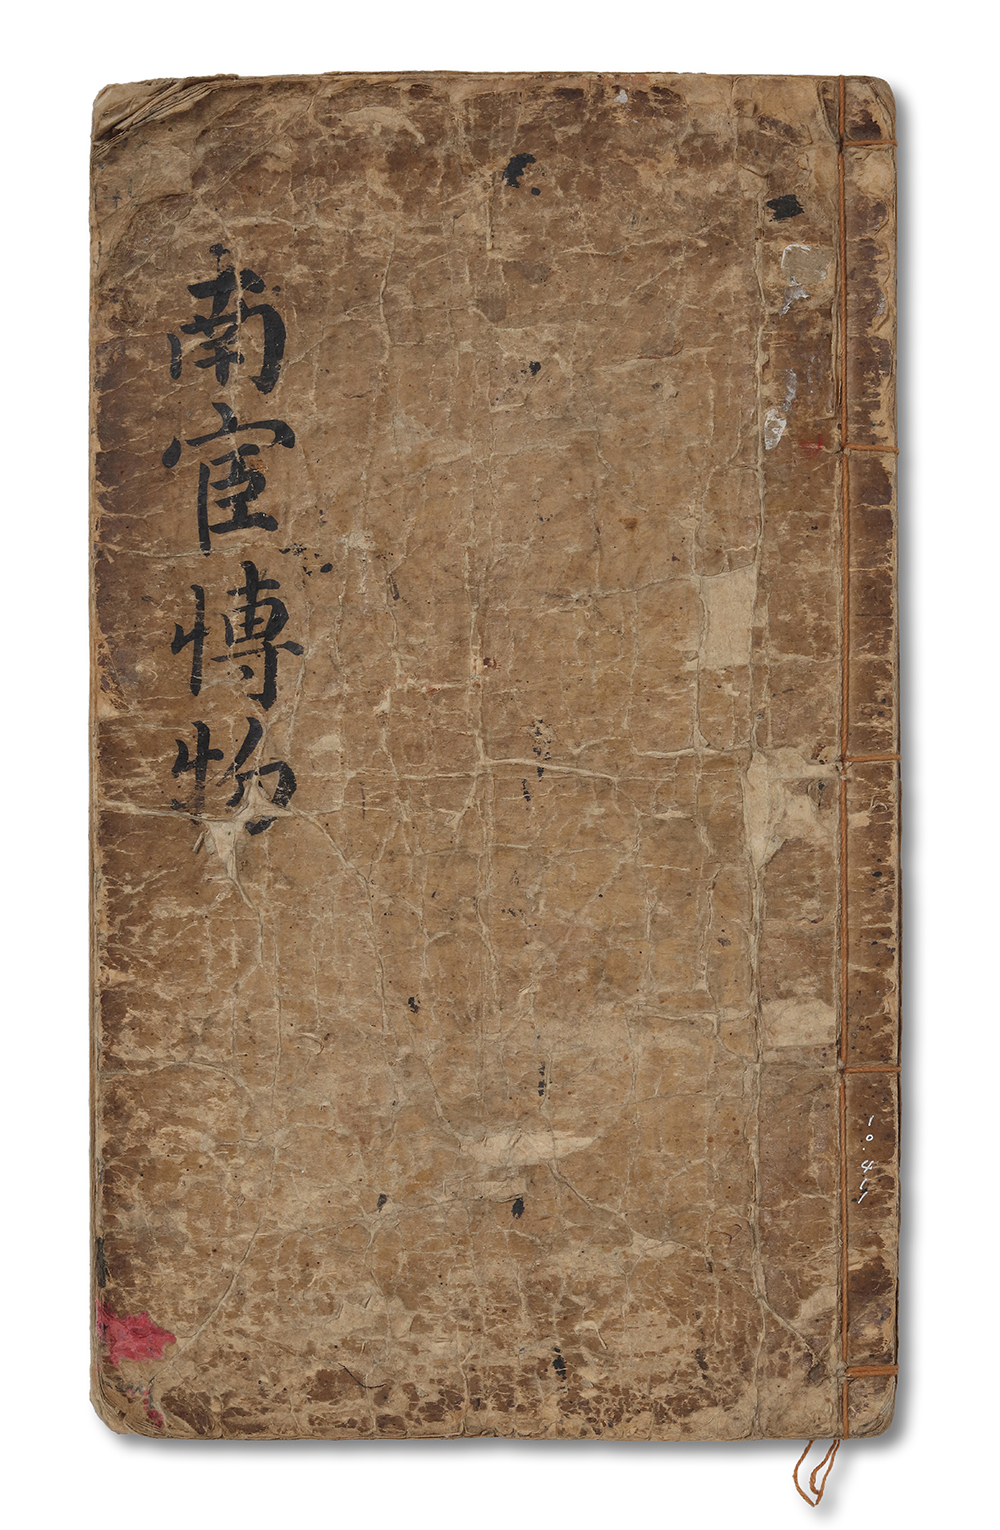 南宦博物
10.411